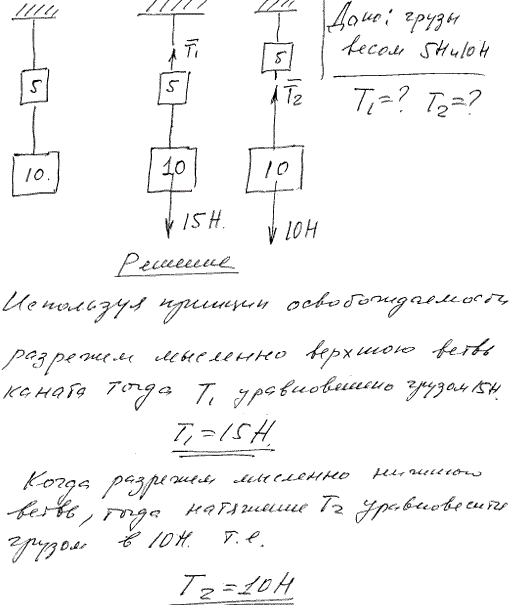 Дано: грузы
весом 5Н и 10Н
T₁=? T₂=?
5
10.
T̅₁
5
10
15Н.
5
T̅₂
10
10Н
Решение
Используя принцип освобождаемости
разрежем мысленно верхнюю ветвь
каната тогда T₁ уравновешено грузом 15Н.
T₁=15Н.
Когда разрежем мысленно нижнюю
ветвь, тогда натяжение T₂ уравновесить
грузом в 10Н. т.е.
T₂=10Н